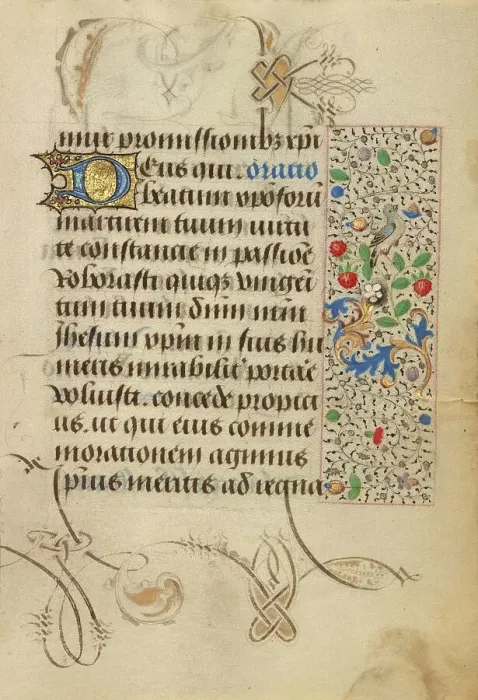 mur promissionibz xpi
Deus qui. oratio
beatum xp̄oforū
martirem tuum uirtu
te constancie in passiōe
Roborasti quiqz unigen
tum tuum dn̄m nr̄m
Jhesum xp̄m in suis hu
meris mirabilit' portar̄e
voluisti. concede propici
us. ut qui eius comme
morationem agimus
ip̄ius meritis ad regna